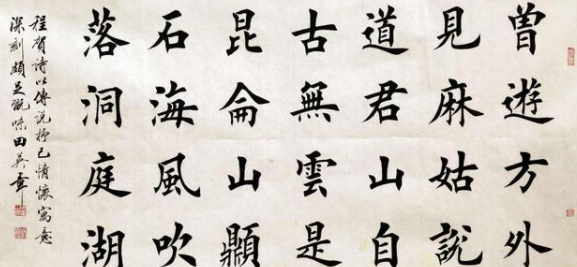 曾遊方外
見麻姑說
道君山自
古無雲是
昆侖山顚
石海風吹
落洞庭湖
程賀詩以傳說抒己情懷寓意
深刻頗足玩味田英章